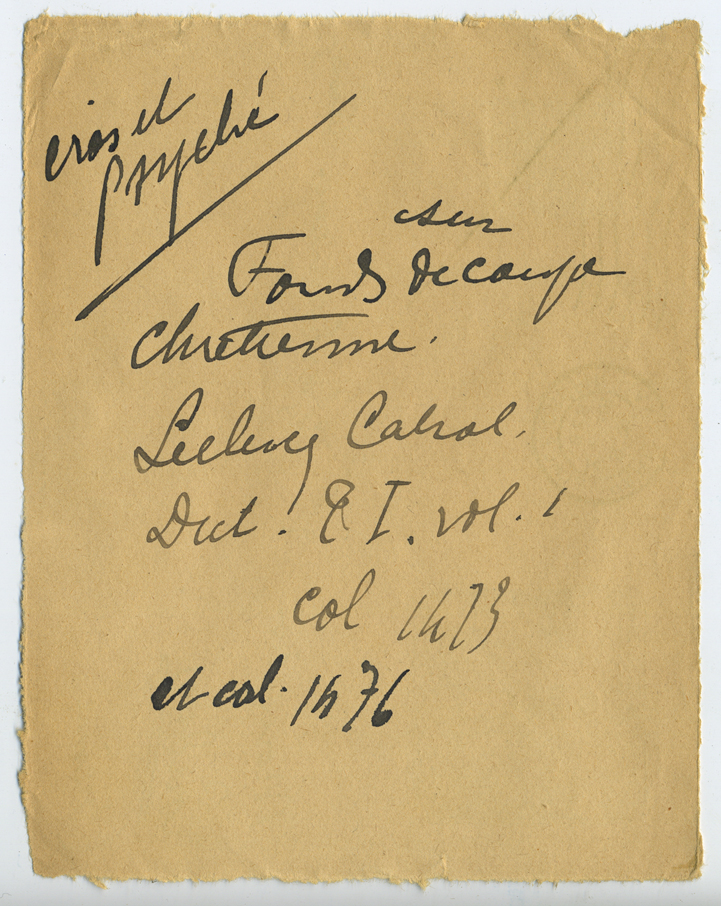 eros et
psyché
sur
Fonds de coupe
chretienne.
Leclercq Cabrol.
Dict. T I. vol. 1
col 1473
et col. 1476